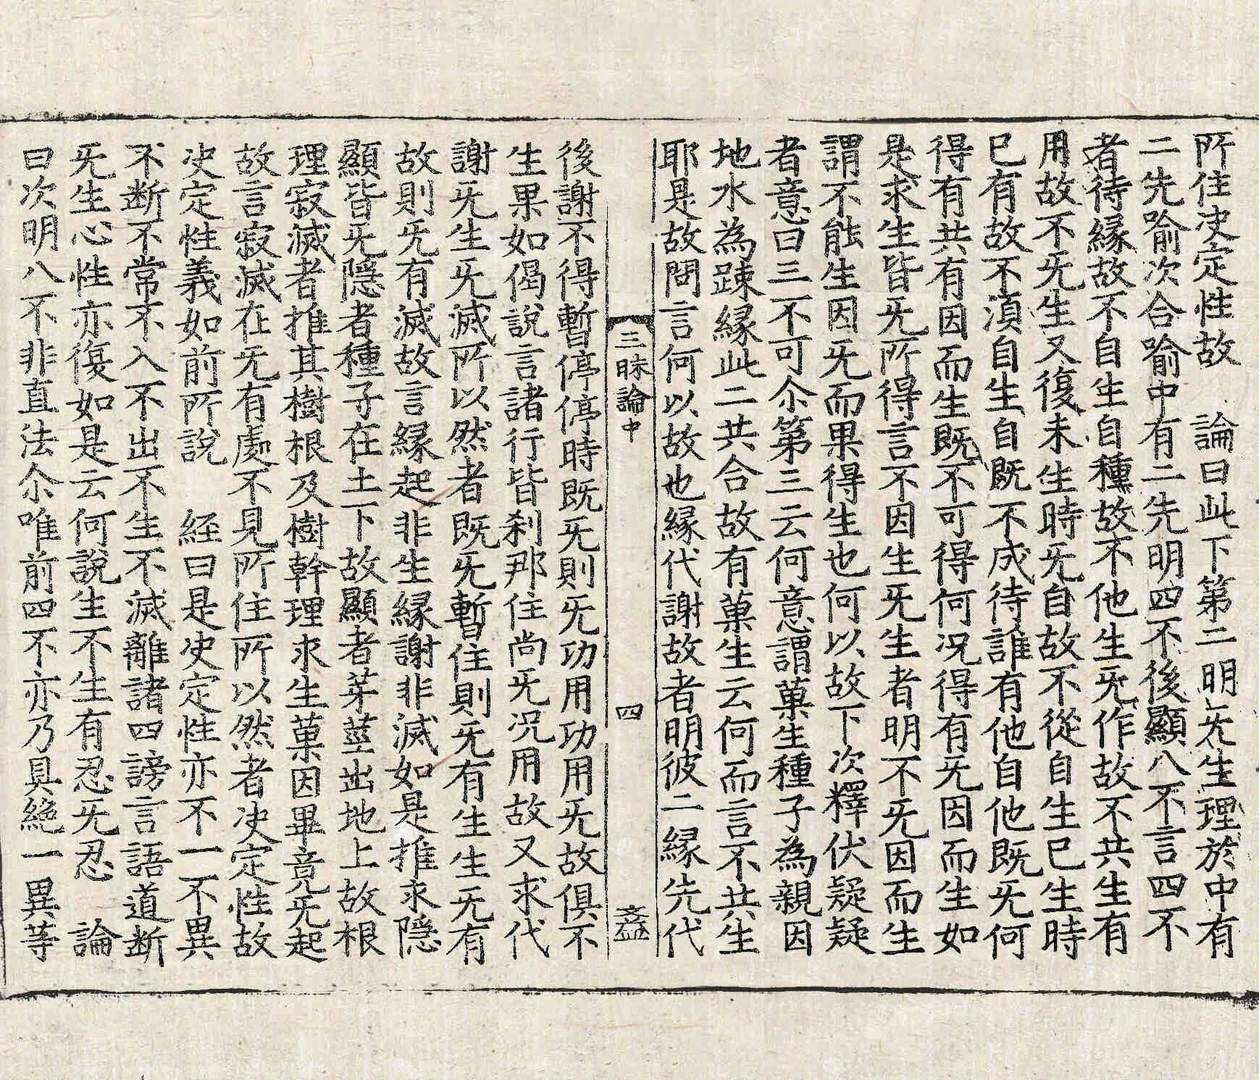 所住决定性故　論曰此下第二明旡生理於中有
二先喻次合喻中有二先明四不後顯八不言四不
者待緣故不自生自種故不他生旡作故不共生有
用故不旡生又復未生時旡自故不從自生已生時
已有故不湏自生自既不成待誰有他自他既旡何
得有共有因而生既不可得何况得有旡因而生如
是求生皆旡所得言不因生旡生者明不旡因而生
謂不能生因旡而果得生也何以故下次釋伏疑疑
者意曰三不可尒第三云何意謂菓生種子為親因
地水為踈緣此二共合故有菓生云何而言不共生
耶是故問言何以故也緣代謝故者明彼二緣先代
三昧論中　四
後謝不得暫停停時既旡則旡功用功用旡故俱不
生果如偈說言諸行皆刹那住尚旡况用故又求代
謝旡生旡滅所以然者既旡暫住則旡有生生旡有
故則旡有滅故言緣起非生緣謝非滅如是推求隱
顯皆旡隱者種子在土下故顯者芽莖出地上故根
理寂滅者推其樹根及樹幹理求生菓因畢竟旡起
故言寂滅在旡有處不見所住所以然者决定性故
决定性義如前所說　經曰是决定性亦不一不異
不断不常不入不出不生不滅離諸四謗言語道断
旡生心性亦復如是云何說生不生有忍旡忍　論
曰次明八不非直法尒唯前四不亦乃具絶一異等